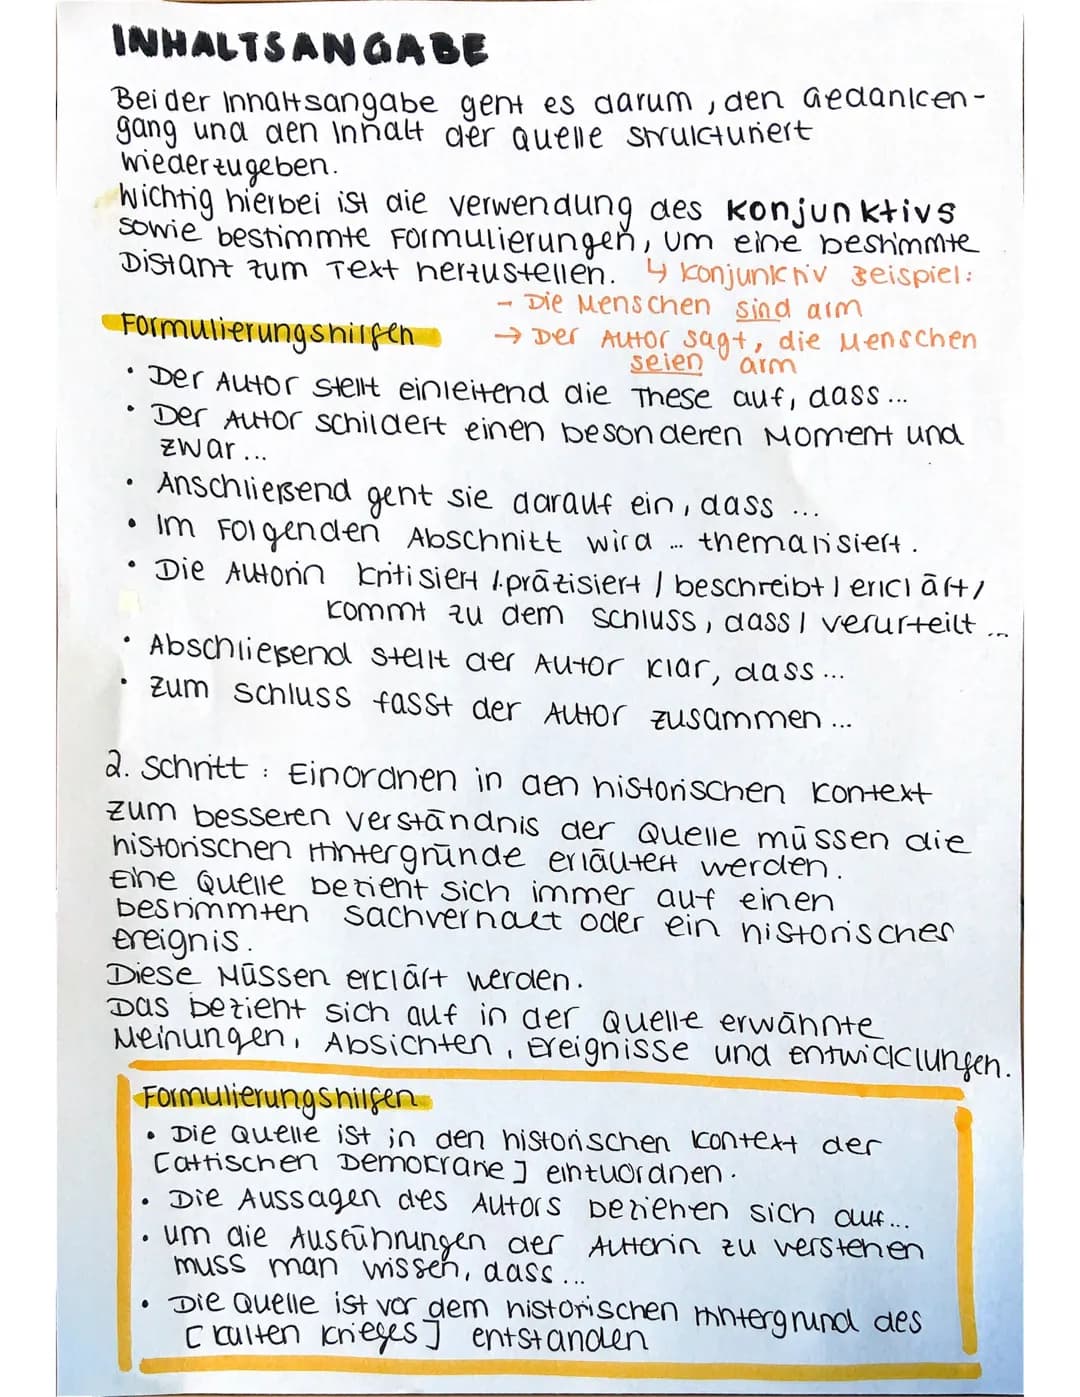 INHALTSANGABE
Bei der Inhaltsangabe geht es darum, den Gedanken-
gang und den Inhalt der Quelle strukturiert
wiederzugeben.
Wichtig hierbei ist die Verwendung des Konjunktivs
sowie bestimmte Formulierungen, um eine bestimmte
Distanz zum Text herzustellen. ↳ Konjunktiv Beispiel:
- Die Menschen sind arm
Formulierungshilfen → Der Autor sagt, die Menschen
seien arm
• Der Autor stellt einleitend die These auf, dass...
• Der Autor schildert einen besonderen Moment und
zwar...
• Anschließend geht sie darauf ein, dass ...
• Im Folgenden Abschnitt wird ... thematisiert.
• Die Autorin kritisiert / präzisiert / beschreibt / erklärt /
kommt zu dem Schluss, dass / verurteilt ...
• Abschließend stellt der Autor klar, dass ...
• Zum Schluss fasst der Autor zusammen ...
2. Schritt : Einordnen in den historischen Kontext
Zum besseren Verständnis der Quelle müssen die
historischen Hintergründe erläutert werden.
Eine Quelle bezieht sich immer auf einen
bestimmten Sachverhalt oder ein historisches
Ereignis.
Diese Müssen erklärt werden.
Das bezieht sich auf in der Quelle erwähnte
Meinungen, Absichten, Ereignisse und Entwicklungen.
Formulierungshilfen
• Die Quelle ist in den historischen Kontext der
[attischen Demokratie] einzuordnen.
• Die Aussagen des Autors beziehen sich auf...
• Um die Ausführungen der Autorin zu verstehen
muss man wissen, dass ...
• Die Quelle ist vor dem historischen Hintergrund des
[kalten Krieges] entstanden